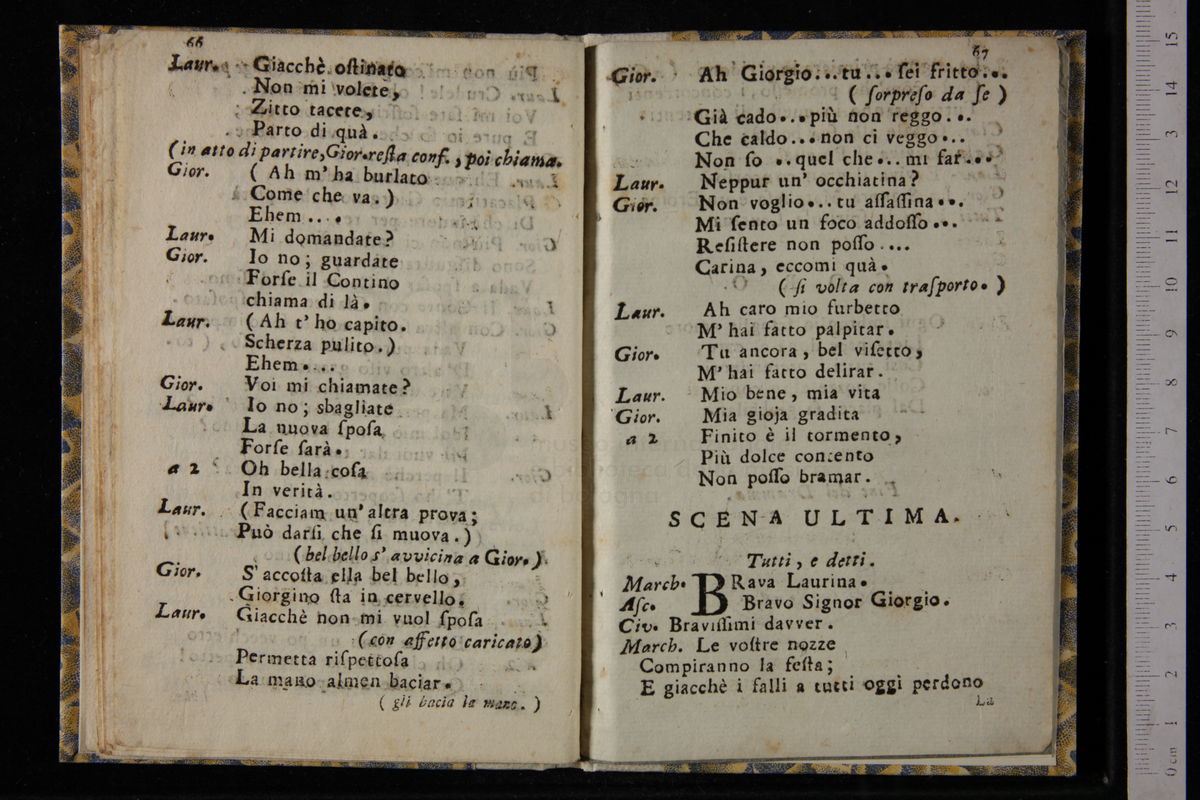 66
Laur. Giacchè oſtinato
Non mi volete,
Zitto tacete,
Parto di quà.
(in atto di partire, Gior. reſta conf., poi chiama.
Gior. ( Ah m' ha burlato
Come che va. )
Ehem ....
Laur. Mi domandate?
Gior. Io no; guardate
Forſe il Contino
chiama di là.
Laur. ( Ah t' ho capito.
Scherza pulito. )
Ehem ....
Gior. Voi mi chiamate?
Laur. Io no; sbagliate
La nuova ſpoſa
Forſe ſarà.
a 2 Oh bella coſa
In verità.
Laur. ( Facciam un' altra prova;
Può darſi che ſi muova. )
( bel bello s' avvicina a Gior. )
Gior. S' accoſta ella bel bello,
Giorgino ſta in cervello.
Laur. Giacchè non mi vuol ſpoſa
( con affetto caricato )
Permetta riſpettoſa
La mano almen baciar.
( gli bacia la mano. )
67
Gior. Ah Giorgio... tu... ſei fritto...
( ſorpreſo da ſe )
Già cado... più non reggo...
Che caldo... non ci veggo...
Non ſo .. quel che... mi far...
Laur. Neppur un' occhiatina?
Gior. Non voglio... tu aſſaſſina...
Mi ſento un foco addoſſo...
Reſiſtere non poſſo ....
Carina, eccomi quà.
( ſi volta con traſporto. )
Laur. Ah caro mio furbetto
M' hai fatto palpitar.
Gior. Tu ancora, bel viſetto,
M' hai fatto delirar.
Laur. Mio bene, mia vita
Gior. Mia gioja gradita
a 2 Finito è il tormento,
Più dolce contento
Non poſſo bramar.
SCENA ULTIMA.
Tutti, e detti.
March. BRava Laurina.
Aſc. Bravo Signor Giorgio.
Civ. Braviſſimi davver.
March. Le voſtre nozze
Compiranno la feſta;
E giacchè i falli a tutti oggi perdono
La